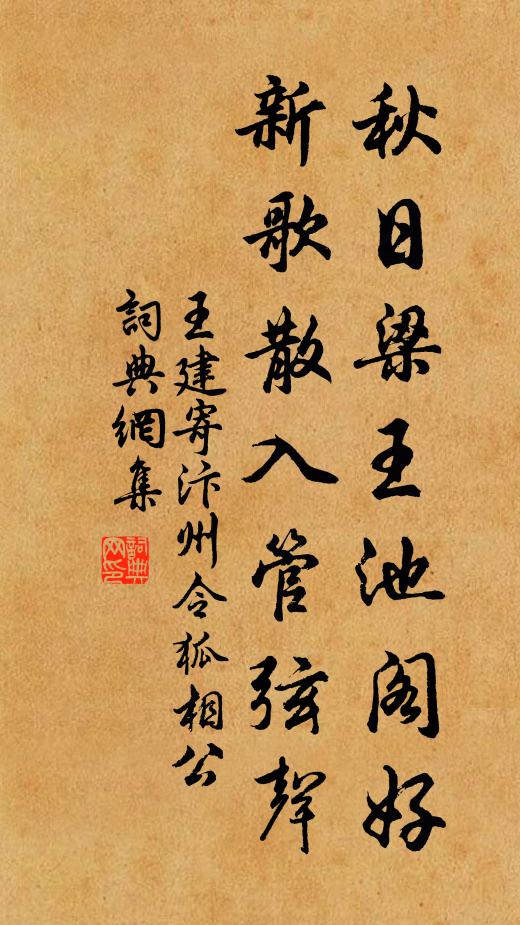 秋日梁王池阁好
新歌散入管弦聲
王建寄汴州令狐相公
詞典網集
詞典网印